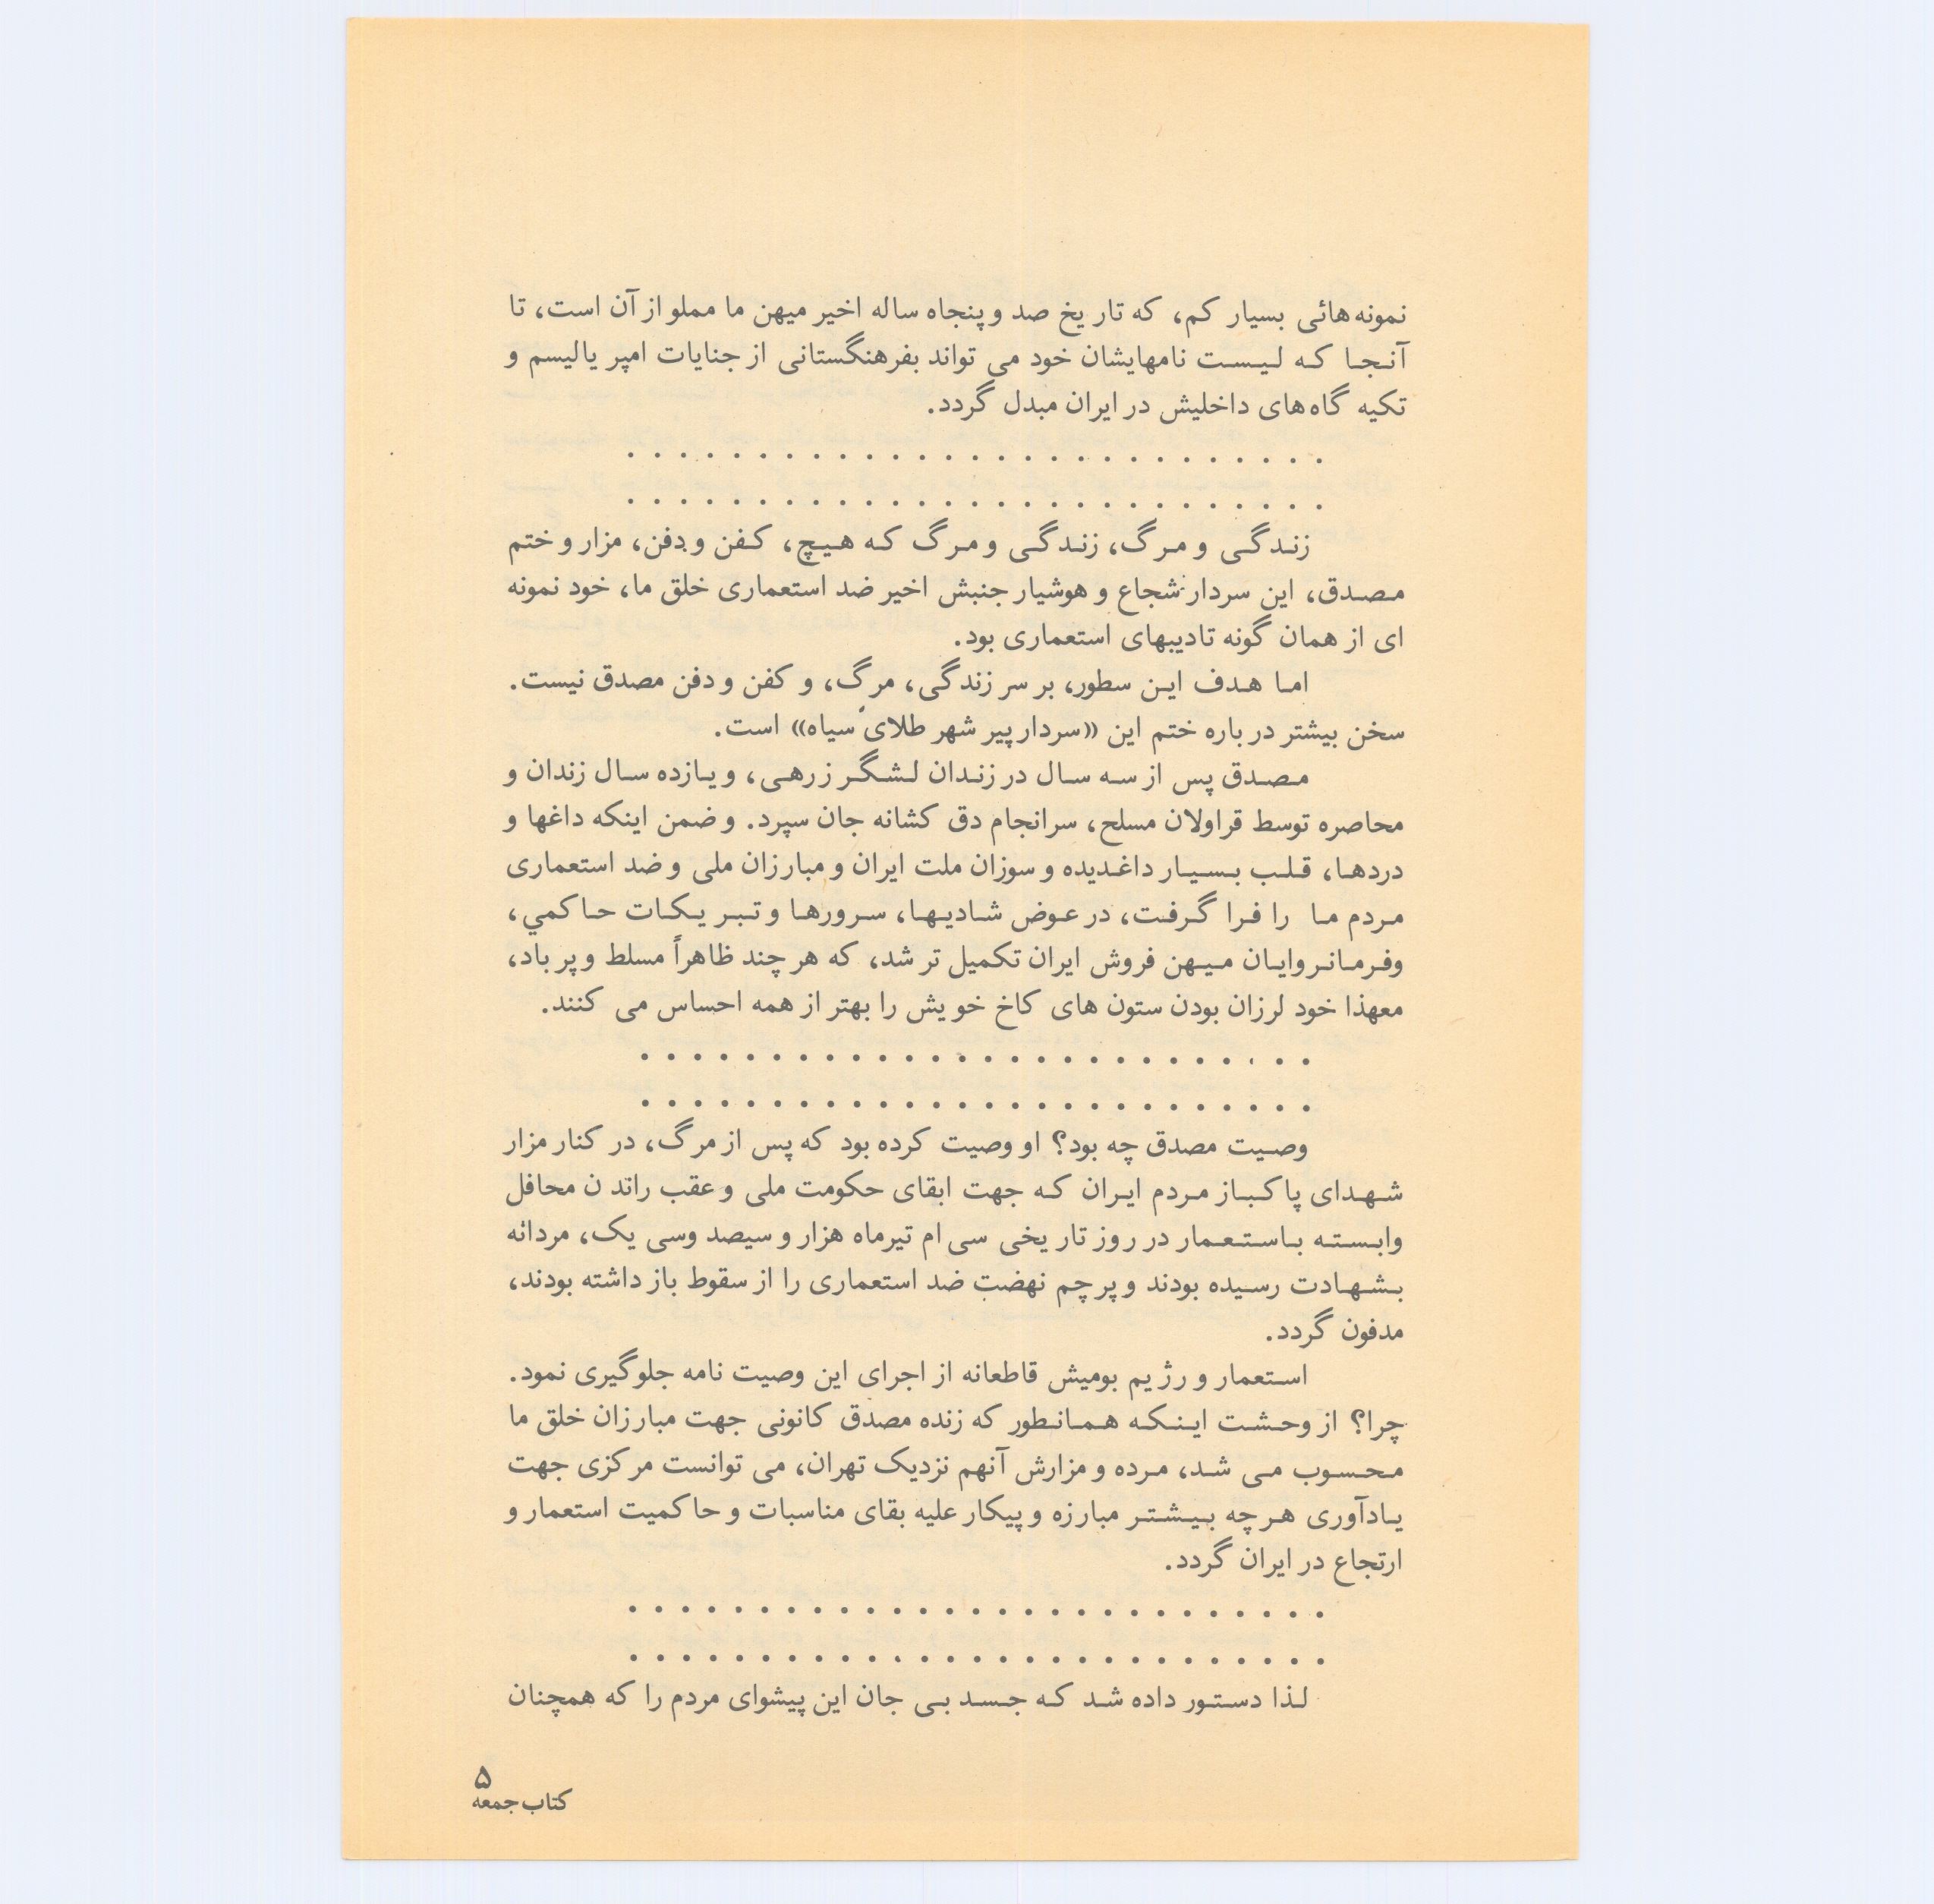 نمونه‌هائی بسیار کم، که تاریخ صد و پنجاه ساله اخیر میهن ما مملو از آن است، تا
آنجا که لیست نامهایشان خود می تواند بفرهنگستانی از جنایات امپریالیسم و
تکیه گاه‌های داخلیش در ایران مبدل گردد.
. . . . . . . . . . . . . . . . . . . . . . . . . . .
. . . . . . . . . . . . . . . . . . . . . . . . . . .
زندگی و مرگ، زندگی و مرگ که هیچ، کفن و دفن، مزار و ختم
مصدق، این سردار شجاع و هوشیار جنبش اخیر ضد استعماری خلق ما، خود نمونه
ای از همان گونه تادیبهای استعماری بود.
اما هدف این سطور، بر سر زندگی، مرگ، و کفن و دفن مصدق نیست.
سخن بیشتر در باره ختم این «سردار پیر شهر طلای سیاه» است.
مصدق پس از سه سال در زندان لشگر زرهی، و یازده سال زندان و
محاصره توسط قراولان مسلح، سرانجام دق کشانه جان سپرد. و ضمن اینکه داغها و
دردها، قلب بسیار داغدیده و سوزان ملت ایران و مبارزان ملی و ضد استعماری
مردم ما را فرا گرفت، در عوض شادیها، سرورها و تبریکات حاکمي،
وفرمانروایان میهن فروش ایران تکمیل تر شد، که هر چند ظاهراً مسلط و پر باد،
معهذا خود لرزان بودن ستون های کاخ خویش را بهتر از همه احساس می کنند.
. . . . . . . . . . . . . . . . . . . . . . . . . .
. . . . . . . . . . . . . . . . . . . . . . . . . .
وصیت مصدق چه بود؟ او وصیت کرده بود که پس از مرگ، در کنار مزار
شهدای پاکباز مردم ایران که جهت ابقای حکومت ملی و عقب راندن محافل
وابسته باستعمار در روز تاریخی سی ام تیرماه هزار و سیصد وسی یک، مردانه
بشهادت رسیده بودند و پرچم نهضت ضد استعماری را از سقوط باز داشته بودند،
مدفون گردد.
استعمار و رژیم بومیش قاطعانه از اجرای این وصیت نامه جلوگیری نمود.
چرا؟ از وحشت اینکه همانطور که زنده مصدق کانونی جهت مبارزان خلق ما
محسوب می شد، مرده و مزارش آنهم نزدیک تهران، می توانست مرکزی جهت
یادآوری هر چه بیشتر مبارزه و پیکار علیه بقای مناسبات و حاکمیت استعمار و
ارتجاع در ایران گردد.
. . . . . . . . . . . . . . . . . . . . . . . . . . .
. . . . . . . . . . . . . . . . . . . . . . . . . . .
لذا دستور داده شد که جسد بی جان این پیشوای مردم را که همچنان
۵
کتاب جمعه